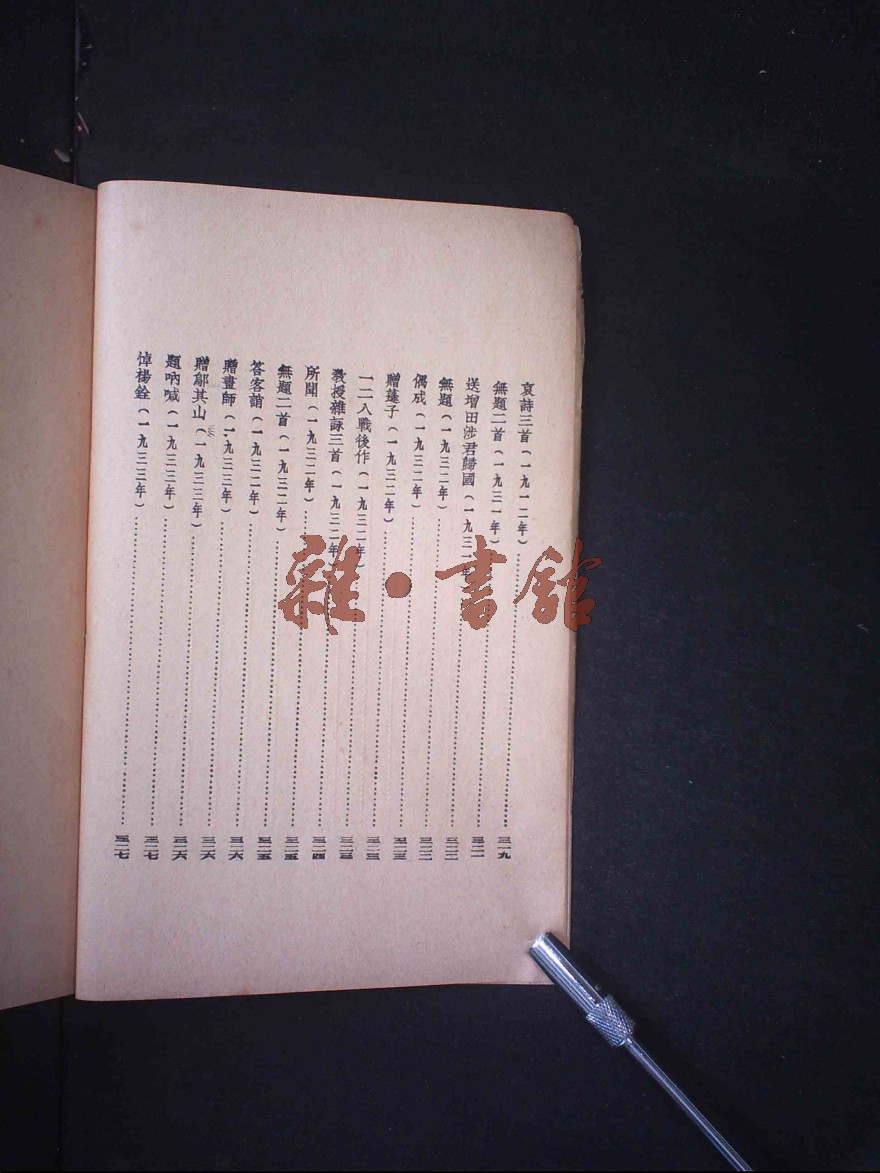 哀詩三首(一九一二年)……三一九
無題二首(一九三一年)……三二一
送增田涉君歸國(一九三一年)……三二二
無題(一九三二年)……三二二
偶成(一九三二年)……三二二
贈蓬子(一九三二年)……三二三
一二八戰後作(一九三二年)……三二三
教授雜詠三首(一九三二年)……三二三
所聞(一九三二年)……三二四
無題二首(一九三二年)……三二五
答客誚(一九三二年)……三二五
贈畫師(一九三三年)……三二六
贈鄔其山(一九三三年)……三二六
題吶喊(一九三三年)……三二六
悼楊銓(一九三三年)……三二七
三二七
雜·書館